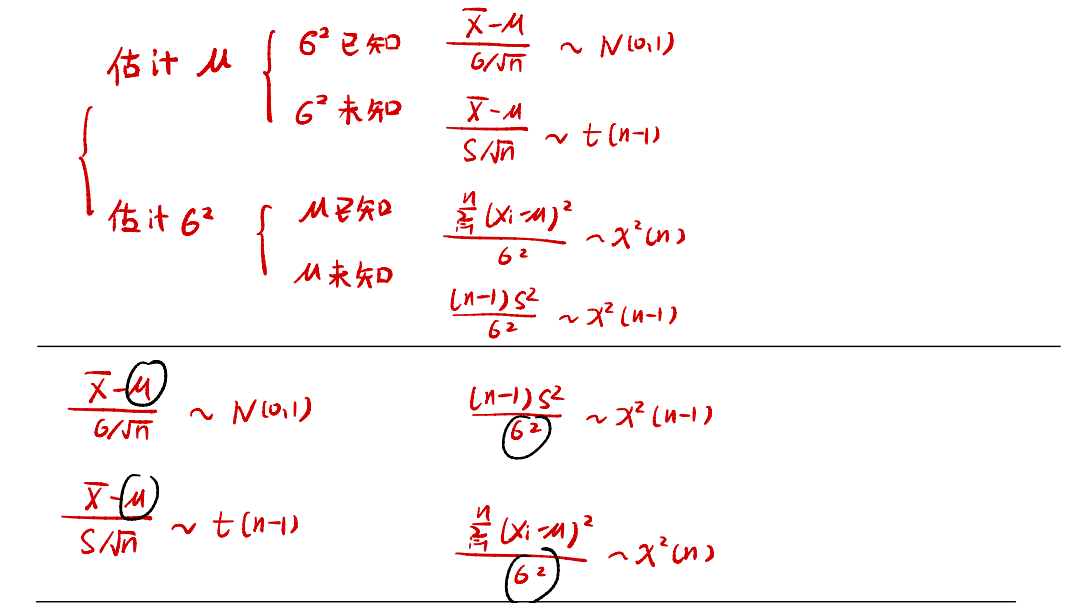 估计 μ { σ² 已知 (X̄-μ)/(σ/√n) ~ N(0,1)
σ² 未知 (X̄-μ)/(S/√n) ~ t(n-1)
估计 σ² { μ已知 ∑_{i=1}^{n}(Xi-μ)²/σ² ~ χ²(n)
μ未知 (n-1)S²/σ² ~ χ²(n-1)
(X̄-μ)/(σ/√n) ~ N(0,1) (n-1)S²/σ² ~ χ²(n-1)
(X̄-μ)/(S/√n) ~ t(n-1) ∑_{i=1}^{n}(Xi-μ)²/σ² ~ χ²(n)